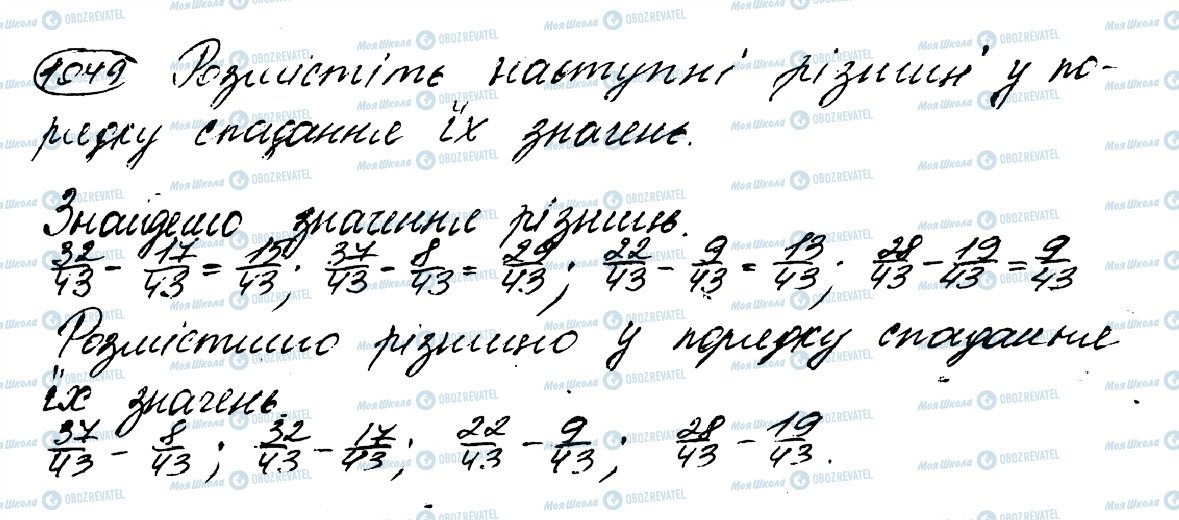 1049 Розмістіть наступні різниці у по-
рядку спадання їх значень.
Знайдемо значення різниць.
32/43 - 17/43 = 15/43; 37/43 - 8/43 = 29/43; 22/43 - 9/43 = 13/43; 28/43 - 19/43 = 9/43
Розмістимо різницю у порядку спадання
їх значень.
37/43 - 8/43; 32/43 - 17/43; 22/43 - 9/43; 28/43 - 19/43.